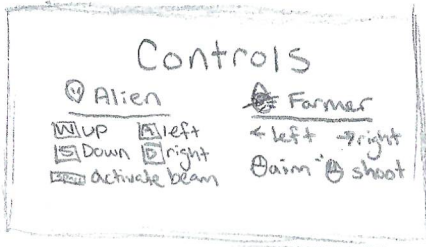 Controls
Alien
Farmer
W UP A left
S Down D right
Space activate beam
← left → right
aim shoot